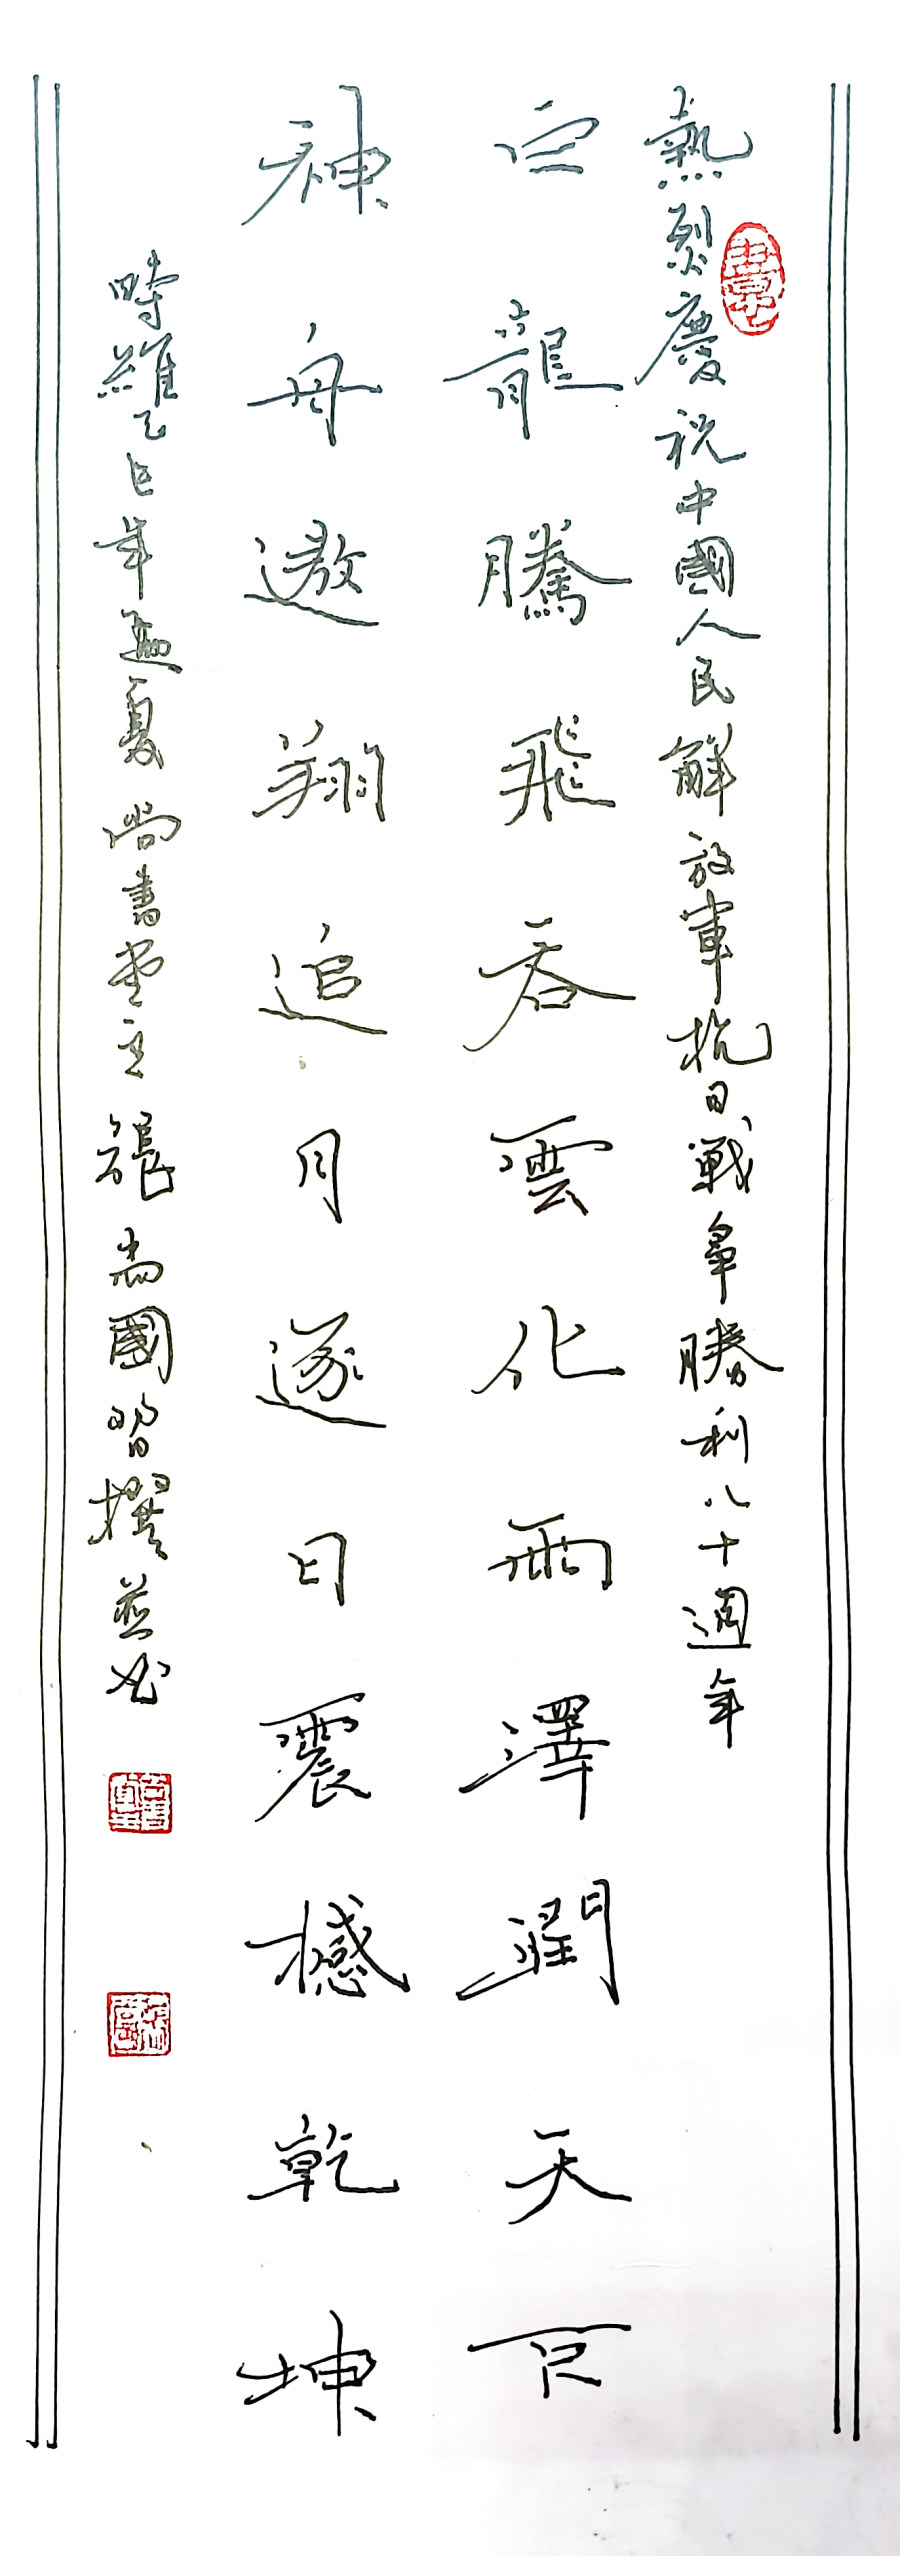 熱烈慶祝中國人民解放軍抗日戰爭勝利八十週年
巨龍騰飛吞雲化雨澤潤天下
神舟遨翔追月逐日震撼乾坤
時維乙巳年夏尚書堂主張尚國習撰並書